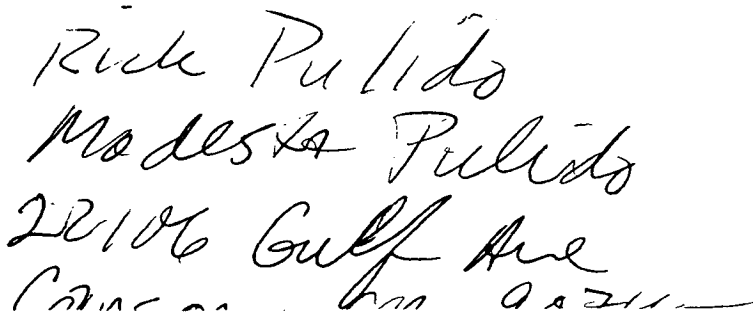 Rick Pulido
Modesta Pulido
22106 Gulf Ave